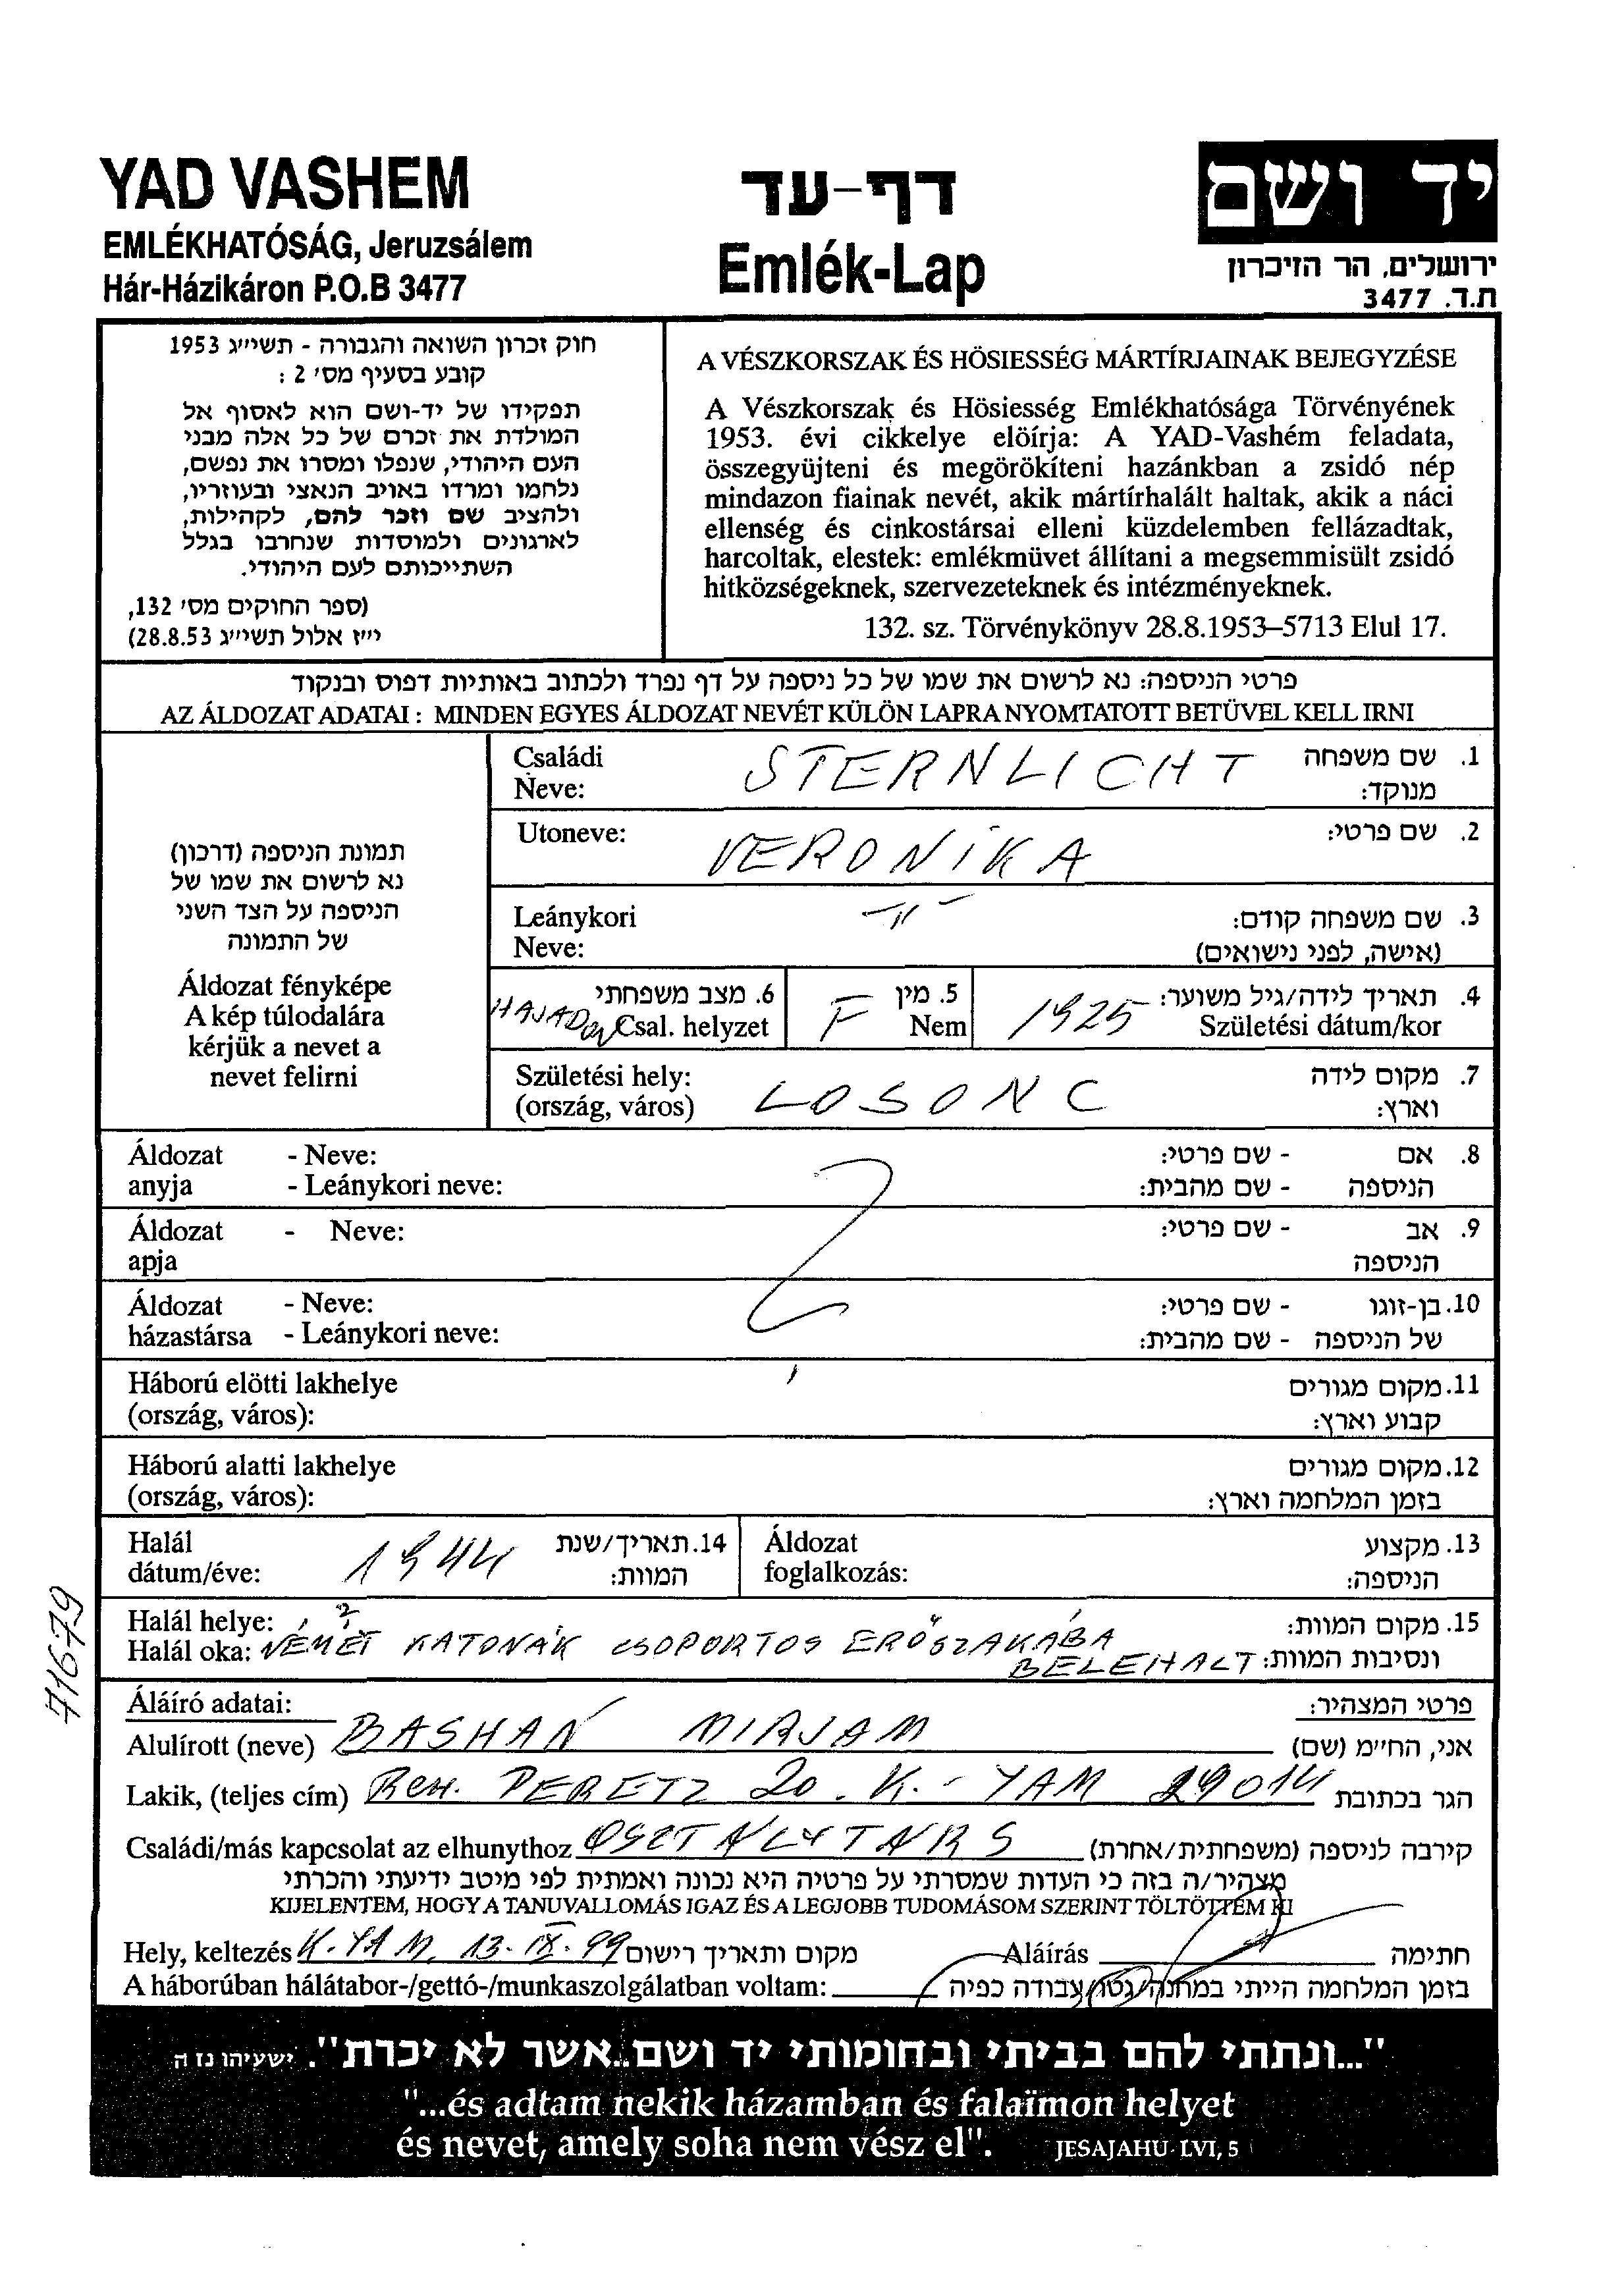 YAD VASHEM
EMLÉKHATÓSÁG, Jeruzsálem
Hár-Házikáron P.O.B 3477
דף-עד
Emlék-Lap
יד ושם
ירושלים, הר הזיכרון
ת.ד. 3477
חוק זכרון השואה והגבורה - תשי״ג 1953
קובע בסעיף מס׳ 2 :
תפקידו של יד-ושם הוא לאסוף אל
המולדת את זכרם של כל אלה מבני
העם היהודי, שנפלו ומסרו את נפשם,
נלחמו ומרדו באויב הנאצי ובעוזריו,
ולהציב שם וזכר להם, לקהילות,
לארגונים ולמוסדות שנחרבו בגלל
השתייכותם לעם היהודי.
(ספר החוקים מס׳ 132,
י״ז אלול תשי״ג 28.8.53)
A VÉSZKORSZAK ÉS HÖSIESSÉG MÁRTÍRJAINAK BEJEGYZÉSE
A Vészkorszak és Hösiesség Emlékhatósága Törvényének
1953. évi cikkelye elöírja: A YAD-Vashém feladata,
összegyüjteni és megörökíteni hazánkban a zsidó nép
mindazon fiainak nevét, akik mártírhalált haltak, akik a náci
ellenség és cinkostársai elleni küzdelemben fellázadtak,
harcoltak, elestek: emlékmüvet állítani a megsemmisült zsidó
hitközségeknek, szervezeteknek és intézményeknek.
132. sz. Törvénykönyv 28.8.1953–5713 Elul 17.
פרטי הניספה: נא לרשום את שמו של כל ניספה על דף נפרד ולכתוב באותיות דפוס ובנקוד
AZ ÁLDOZAT ADATAI : MINDEN EGYES ÁLDOZAT NEVÉT KÜLÖN LAPRA NYOMTATOTT BETÜVEL KELL IRNI
תמונת הניספה (דרכון)
נא לרשום את שמו של
הניספה על הצד השני
של התמונה
Áldozat fényképe
A kép túlodalára
kérjük a nevet a
nevet felirni
Családi Neve: STERNLICHT 1. שם משפחה מנוקד:
Utoneve: VERONIKA 2. שם פרטי:
Leánykori Neve: -"- 3. שם משפחה קודם: (אישה, לפני נישואים)
HAJADON Csal. helyzet 6. מצב משפחתי
F Nem 5. מין
1925 Születési dátum/kor 4. תאריך לידה/גיל משוער:
Születési hely: (ország, város) LOSONC 7. מקום לידה וארץ:
Áldozat - Neve: 8. אם - שם פרטי:
anyja - Leánykori neve: הניספה - שם מהבית:
Áldozat - Neve: ? 9. אב - שם פרטי:
apja הניספה
Áldozat - Neve: 10. בן-זוגו - שם פרטי:
házastársa - Leánykori neve: של הניספה - שם מהבית:
Háború elötti lakhelye 11. מקום מגורים
(ország, város): קבוע וארץ:
Háború alatti lakhelye 12. מקום מגורים
(ország, város): בזמן המלחמה וארץ:
Halál dátum/éve: 1944 14. תאריך/שנת המוות:
Áldozat foglalkozás: 13. מקצוע הניספה:
Halál helye: ? 15. מקום המוות:
Halál oka: NÉMET KATONÁK CSOPORTOS ERŐSZAKÁBA
BELEHALT ונסיבות המוות:
71679
Áláíró adatai: פרטי המצהיר:
Alulírott (neve) BASHAN MIRJAM אני, החי״מ (שם)
Lakik, (teljes cím) Reh. PERETZ 20. K.-YAM 29014 הגר בכתובת
Családi/más kapcsolat az elhunythoz OSZTÁLYTÁRS קירבה לניספה (משפחתית/אחרת)
מצהיר/ה בזה כי העדות שמסרתי על פרטיה היא נכונה ואמתית לפי מיטב ידיעתי והכרתי
KIJELENTEM, HOGY A TANUVALLOMÁS IGAZ ÉS A LEGJOBB TUDOMÁSOM SZERINT TÖLTÖTTEM KI
Hely, keltezés K.-YAM, 13. IX. 99 מקום ותאריך רישום Aláírás חתימה
A háborúban hálátabor-/gettó-/munkaszolgálatban voltam: בזמן המלחמה הייתי במחנה/גטו/עבודה כפיה
"...ונתתי להם בביתי ובחומותי יד ושם..אשר לא יכרת". ישעיהו נז ה
"...és adtam nekik házamban és falaïmon helyet
és nevet, amely soha nem vész el". JESAJAHU LVI, 5